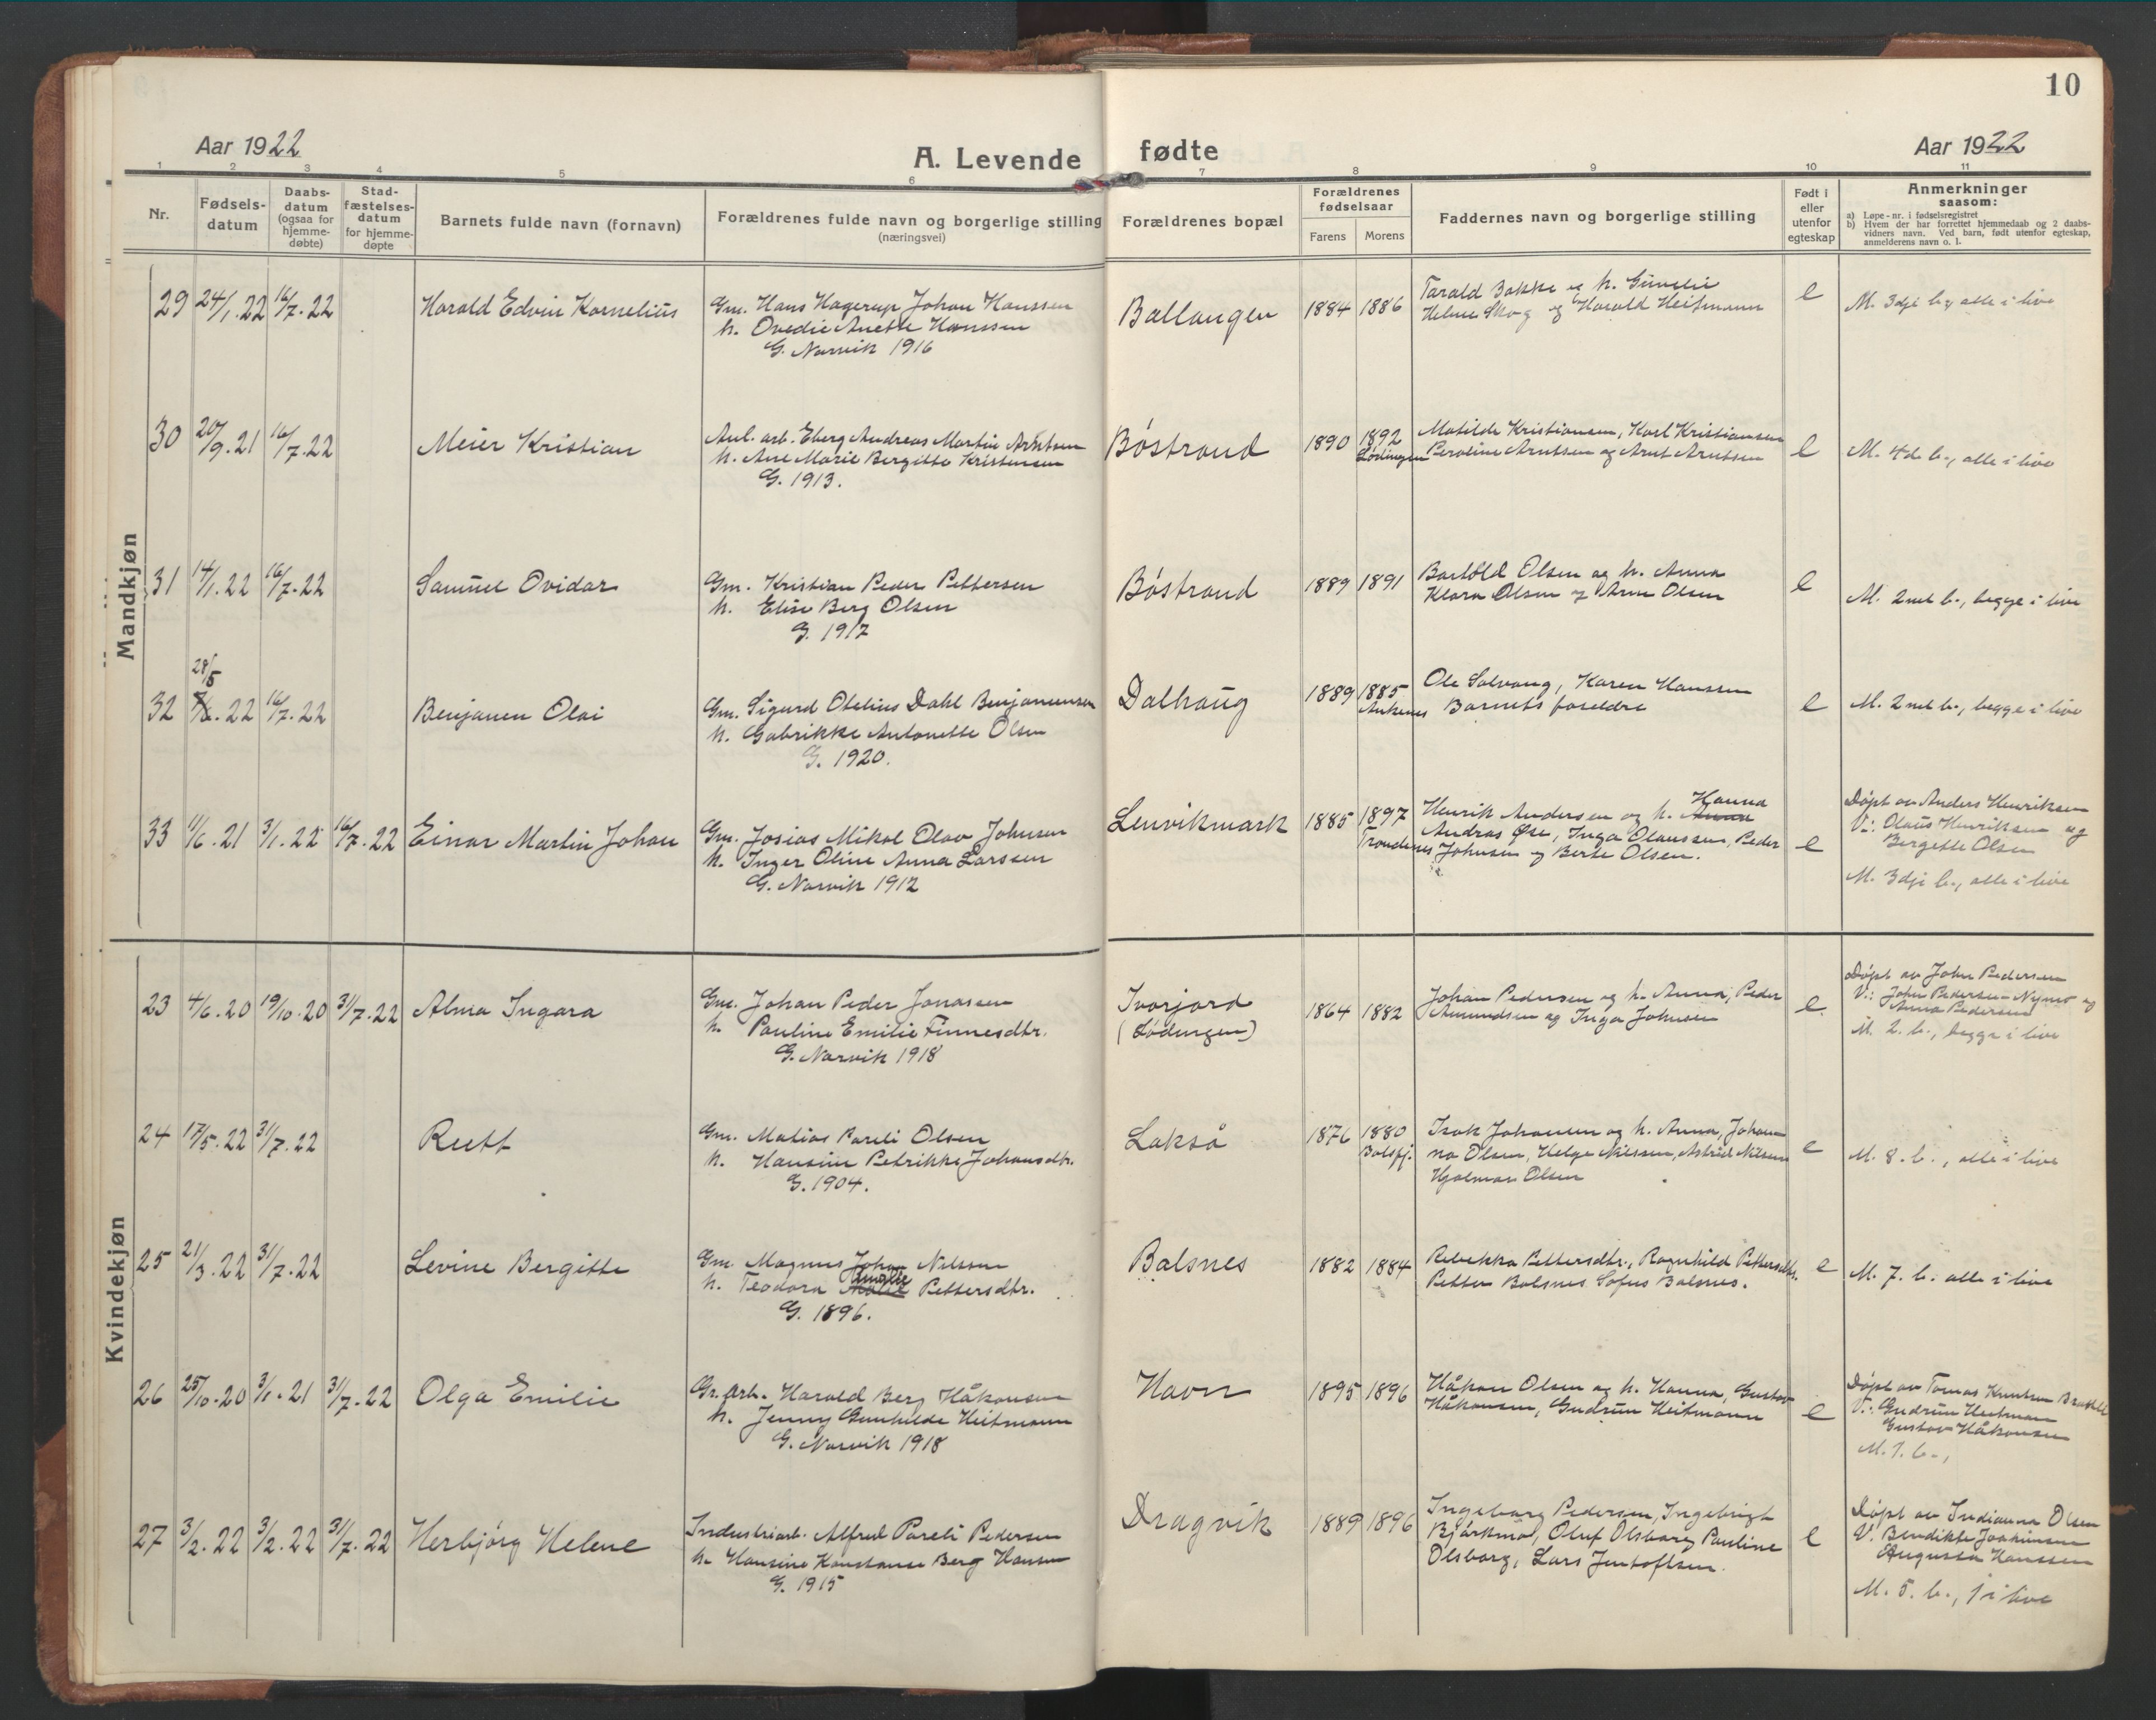 10
Aar 1922
A. Levende fødte
Aar 1922
1 2 3 4 5 6 7 8 9 10 11
Nr.
Fødselsdatum
Daabsdatum (ogsaa for hjemmedøbte)
Stadfæstelsesdatum for hjemmedøpte
Barnets fulde navn (fornavn)
Forældrenes fulde navn og borgerlige stilling
(næringsvei)
Forældrenes bopæl
Forældrenes fødselsaar
Farens Morens
Faddernes navn og borgerlige stilling
Født i eller utenfor egteskap
Anmerkninger saasom:
a) Løpe-nr. i fødselsregistret
b) Hvem der har forrettet hjemmedaab og 2 daabsvidners navn. Ved barn, født utenfor egteskap, anmelderens navn o. l.
Mandkjøn
29 24/1.22 16/7.22 Harald Edvin Kornelius
Gm. Hans Hagerup Johan Hanssen
h. Ovedie Anette Hanssen
G. Narvik 1916
Ballangen 1884 1886
Tarald Bakke og h.
Helene Skog og Harald Heitmann
e
M. 3dje b., alle i live
30 20/9.21 16/7.22 Meier Kristian
Anl. arb. Eberg Andreas Martin Arntsen
h. Ane Marie Bergitte Kristensen
G. 1913.
Bøstrand 1890 1892 Lødingen
Matilde Kristiansen, Karl Kristiansen
Peroline Arntsen og Arnt Arntsen
e
M. 4de b., alle i live
31 14/1.22 16/7.22 Samuel Ovidar
Gm. Kristian Peder Pettersen
h. Elise Berg Olsen
G. 1917
Bøstrand 1889 1891
Bartold Olsen og h. Anna
Klara Olsen og Arne Olsen
e
M. 2net b., begge i live
28/5
32 22 16/7.22 Benjamen Olai
Gm. Sigurd Otelius Dahl Benjaminsen
h. Gabrikke Antonette Olsen
G. 1920.
Dalhaug 1889 1885 Ankenes
Ole Solvang, Karen Hanssen
Barnets foreldre
e
M. 2net b., begge i live
33 11/6.21 3/1.22 16/7.22 Einar Martin Johan
Gm. Josias Mikal Olav Johnsen
h. Inger Oline Anna Larssen
G. Narvik 1912
Lenvikmark 1885 1897 Trondenes
Henrik Andersen og h. Hanna
Andras Øse, Inga Olaussen, Peder
Johnsen og Berte Olsen.
e
Døpt av Anders Henriksen
V.: Olaus Henriksen og
Bergette Olsen
M. 3dje b., alle i live
Kvindekjøn
23 4/6.20 19/10.20 31/7.22 Alma Ingara
Gm. Johan Peder Jonassen
h. Pauline Emilie Finnesdtr.
G. Narvik 1918
Ivarjord
(Lødingen)
1864 1882
Johan Pedersen og h. Anna, Peder
Amundsen og Inga Johnsen
e
Døpt av John Pedersen
V.: John Pedersen-Nymo og
Anna Pedersen
M. 2. b., begge i live
24 17/5.22 31/7.22 Rutt
Gm. Matias Pareli Olsen
h. Hansine Petrikke Johansdtr.
G. 1904.
Lakså 1876 1880 Balsfj.
Isak Johansen og h. Anna, Johan-
na Olsen, Helge Nilssen, Astrid Nilsen
Hjalmar Olsen
e
M. 8. b., alle i live
25 21/3.22 31/7.22 Levine Bergitte
Gm. Magnus Johan Nilssen
h. Teodora Amalie Pettersdtr.
G. 1896.
Balsnes 1882 1884
Rebekka Pettersdtr., Ragnhild Pettersdtr.
Petter Balsnes Sofus Balsnes.
e
M. 7. b. alle i live
26 25/10.20 3/1.21 31/7.22 Olga Emilie
Gr. arb. Harald Berg Håkonsen
h. Jenny Gunhilde Heitmann
G. Narvik 1918
Havn 1895 1896
Håkon Olsen og h. Hanna, Gustav
Håkonsen, Gudrun Heitmann
e
Døpt av Tomas Knutsen
V.: Gudrun Heitman
Gustav Håkonsen
M. 1. b.,
27 3/2.22 3/2.22 31/7.22 Herbjørg Helene
Industriarb. Alfred Pareli Pedersen
h. Hansine Konstanse Berg Hansen
G. 1915
Dragvik 1889 1896
Ingeborg Pedersen, Ingebrigt
Bjørkmo, Oluf Olsborg Pauline
Olsborg, Lars Jentoftsen.
e
Døpt av Indianna Olsen
V. Bendikte Joakimsen
Augusta Hanssen
M. 5. b., 1 i live